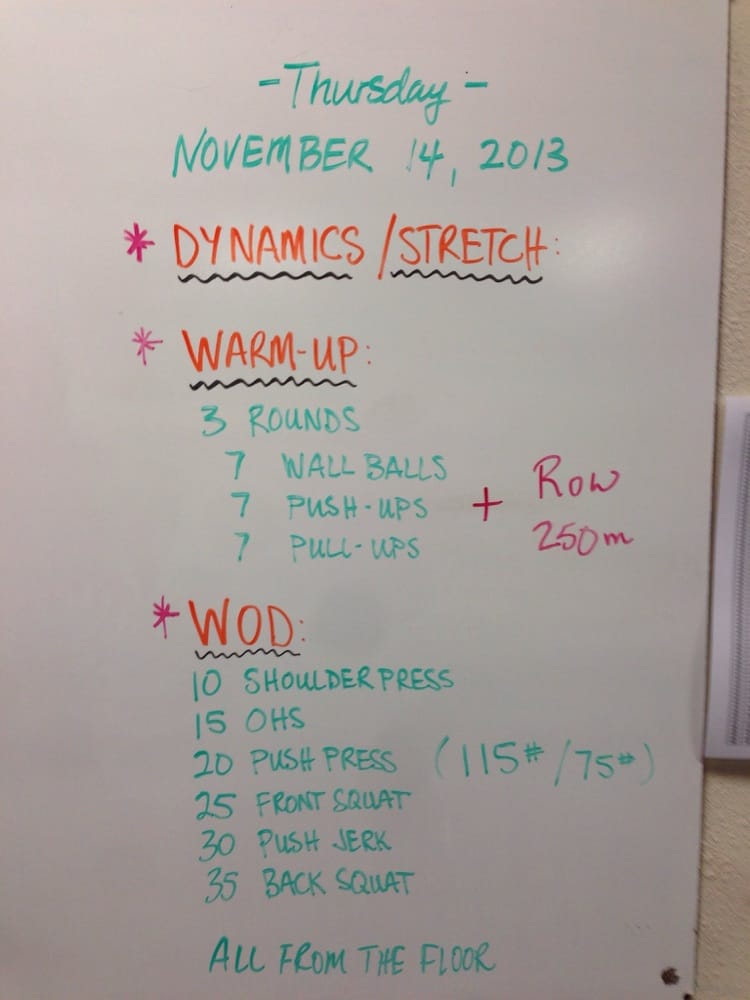 -Thursday-
NOVEMBER 14, 2013
* DYNAMICS / STRETCH:
* WARM-UP:
3 ROUNDS
7 WALL BALLS
7 PUSH-UPS
7 PULL-UPS
+ Row
250m
* WOD:
10 SHOULDER PRESS
15 OHS
20 PUSH PRESS (115# / 75#)
25 FRONT SQUAT
30 PUSH JERK
35 BACK SQUAT
ALL FROM THE FLOOR